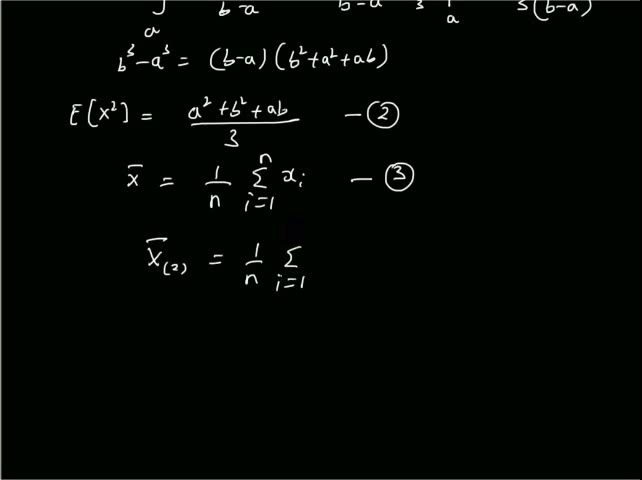 a b-a b-a 3 a 3(b-a)
b³-a³ = (b-a) (b²+a²+ab)
E[X²] = (a²+b²+ab)/3 — ②
x̄ = 1/n Σ_{i=1}^{n} x_i — ③
X̄_(2) = 1/n Σ_{i=1}